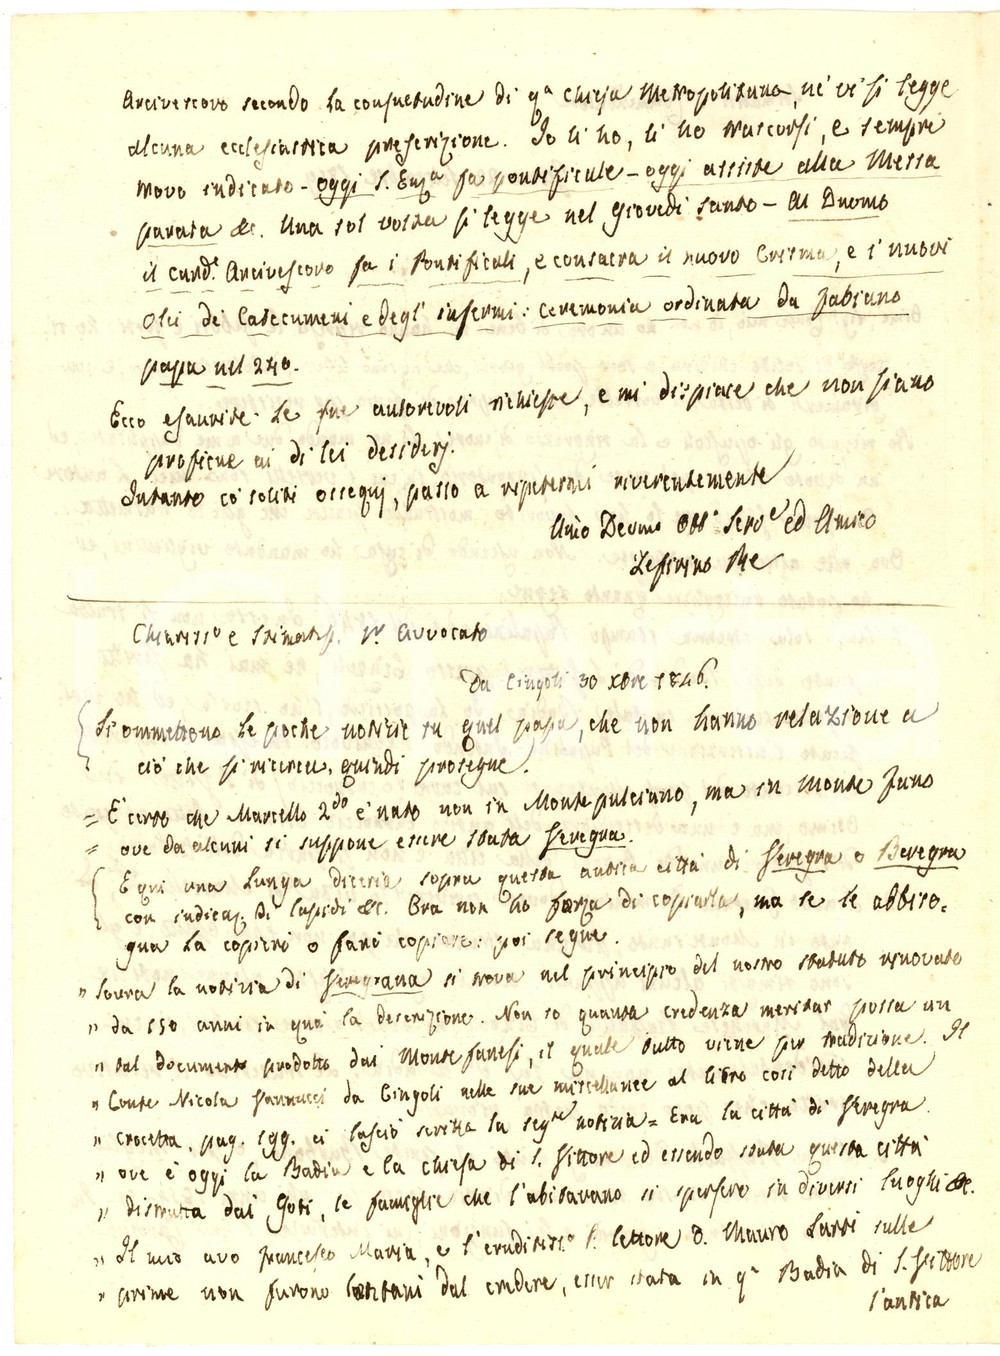 Arcivescovo secondo la consuetudine di qª Chiesa Metropolitana, nè vi si legge
alcuna ecclesiastica prescrizione. Io li ho, li ho trascorsi, e sempre
trovo indicato - oggi S. Emzª fa pontificale - oggi assiste alla Messa
parata &c. Una sol volta si legge nel Giovedì santo - Al Duomo
il Card.e Arcivescovo fa i Pontificali, e consacra il nuovo Crisma, e i nuovi
Olei de' Catecumeni e degl' infermi: ceremonia ordinata da Fabiano
papa nel 240.
Ecco esaurite le sue autorevoli richieste, e mi dispiace che non siano
proficue ai di lei desiderj.
Intanto co' soliti ossequj, passo a ripetermi riverentemente
Umo Devmo Obb.o Serv.e ed Amico
Zefirino Re
Chiariss.o e Stimatiss. Sr. Avvocato
Da Cingoli 30 Xbre 1846.
(Si ommettono le poche notizie su quel papa, che non hanno relazione a
ciò che si ricerca, quindi prosegue.)
= È certo che Marcello 2do è nato non in Montepulciano, ma in Monte Fano
= ove da alcuni si suppone essere stata Veregra.
E qui una lunga diceria sopra questa antica città di Veregra o Beregra
con indicaz. di lapidi &c. Ora non ho forza di copiarla, ma se le abbiso=
gna la copierò o farò copiare: poi segue.
" Sovra la notizia di Veregrana si trova nel principio del nostro statuto rinovato
" da 150 anni in quà la descrizione. Non so quanta credenza meritar possa un
" tal documento prodotto dai Monte Fanesi, il quale tutto viene per tradizione. Il
" Conte Nicola Vannucci da Cingoli nelle sue miscellanee al libro così detto della
" Crocetta, pag. 199. ci lasciò scritta la seg.te notizia = Era la città di Veregra
" ove è oggi la Badia e la Chiesa di S. Vittore ed essendo stata questa città
" distrutta dai Goti, le famiglie che l'abitavano si spersero in diversi luoghi &c.
" Il mio avo Francesco Maria, e l'eruditiss.o P. lettore D. Mauro Sarti sulle
" prime non furono lontani dal credere, esser stata in qª Badia di S. Vittore
l'antica